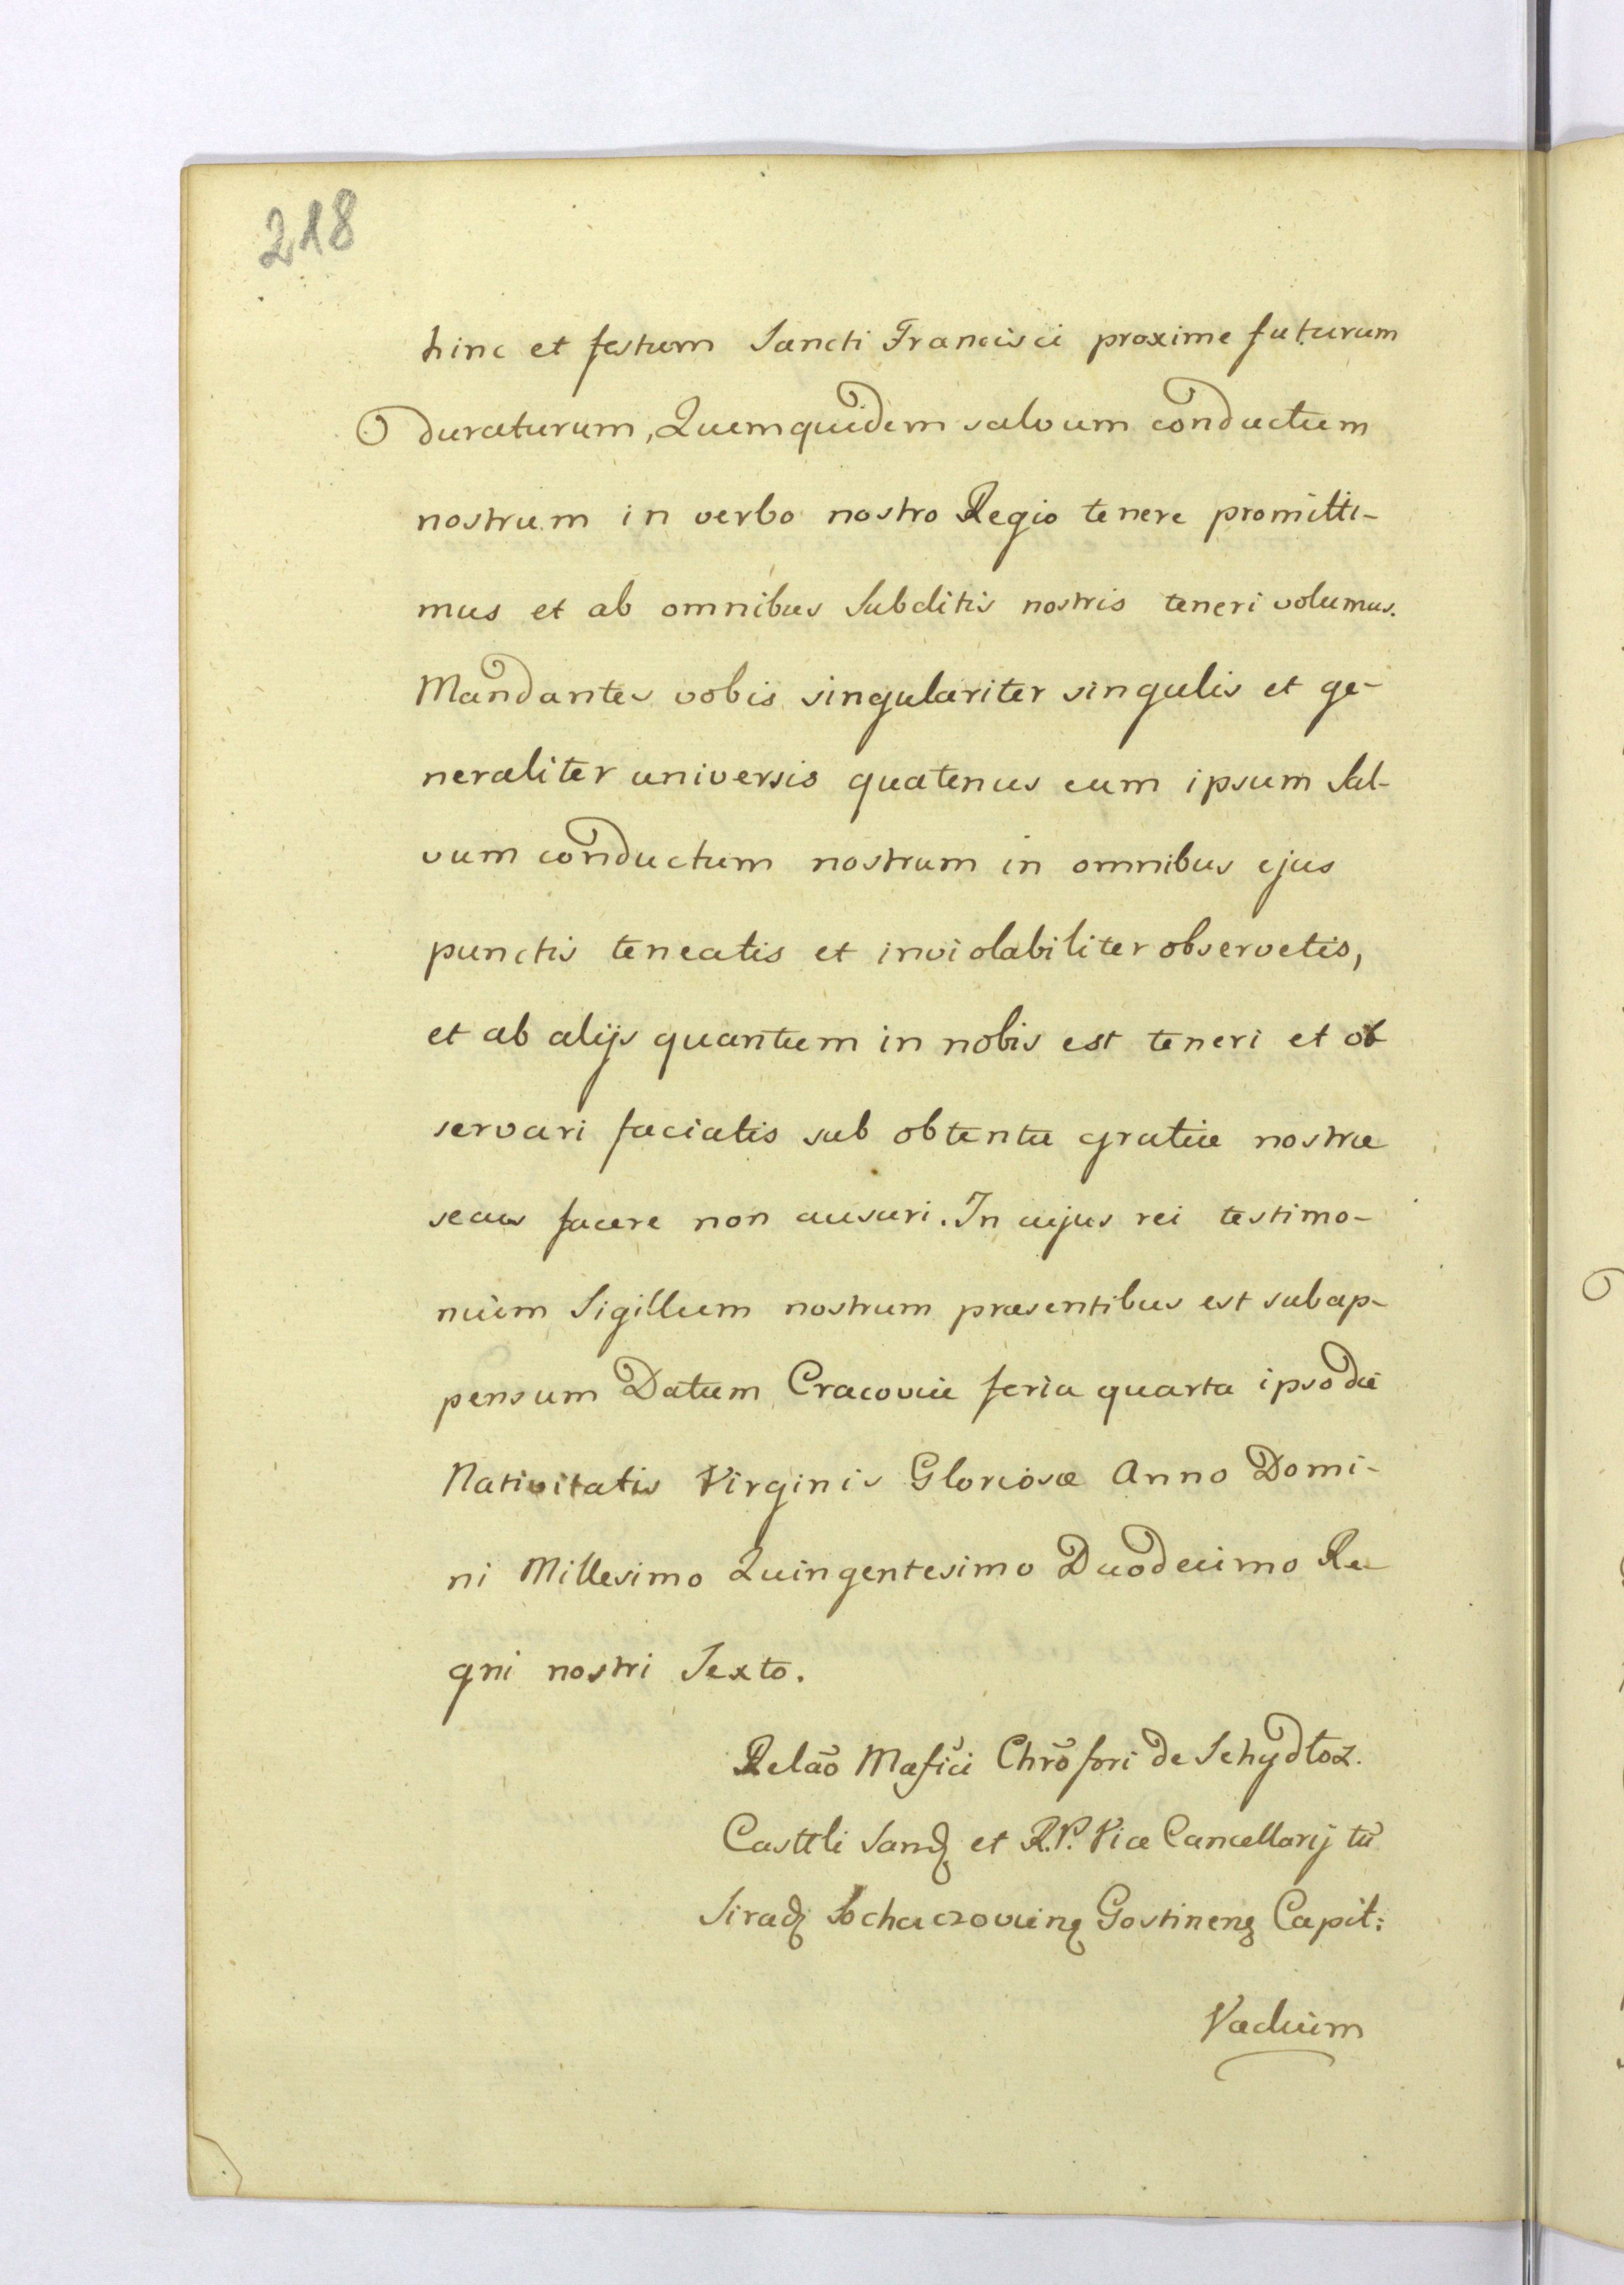 218
hinc et festum Sancti Francisci proxime futurum
duraturum, Quemquidem salvum conductum
nostrum in verbo nostro Regio tenere promitti-
mus et ab omnibus Subditis nostris teneri volumus.
Mandantes vobis singulariter singulis et ge-
neraliter universis quatenus eum ipsum Sal-
vum conductum nostrum in omnibus ejus
punctis teneatis et inviolabiliter observetis,
et ab alijs quantum in nobis est teneri et ob
servari faciatis sub obtentu gratiæ nostræ
secus facere non ausuri. In cujus rei testimo-
nium Sigillum nostrum præsentibus est subap-
pensum Datum Cracoviæ feria quarta ipso die
Nativitatis Virginis Gloriosæ Anno Domi-
ni Millesimo Quingentesimo Duodecimo Re-
gni nostri Sexto.
Relaõ Mafici Chrõfori de Schydłoz.
Casttli Sand et R.P. Vice Cancellarij tũ
Sirad Sochaczovien Gostinen Capit:
Vadium